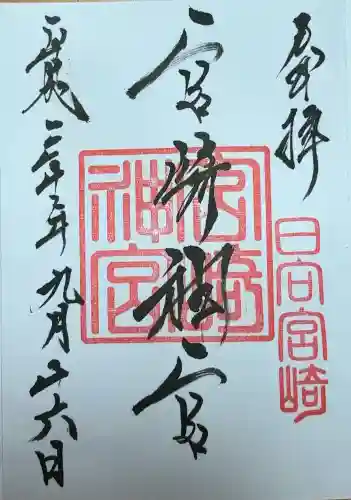 奉拝
日向宮崎
宮崎神宮
宮崎神宮
平成三十年九月二十六日